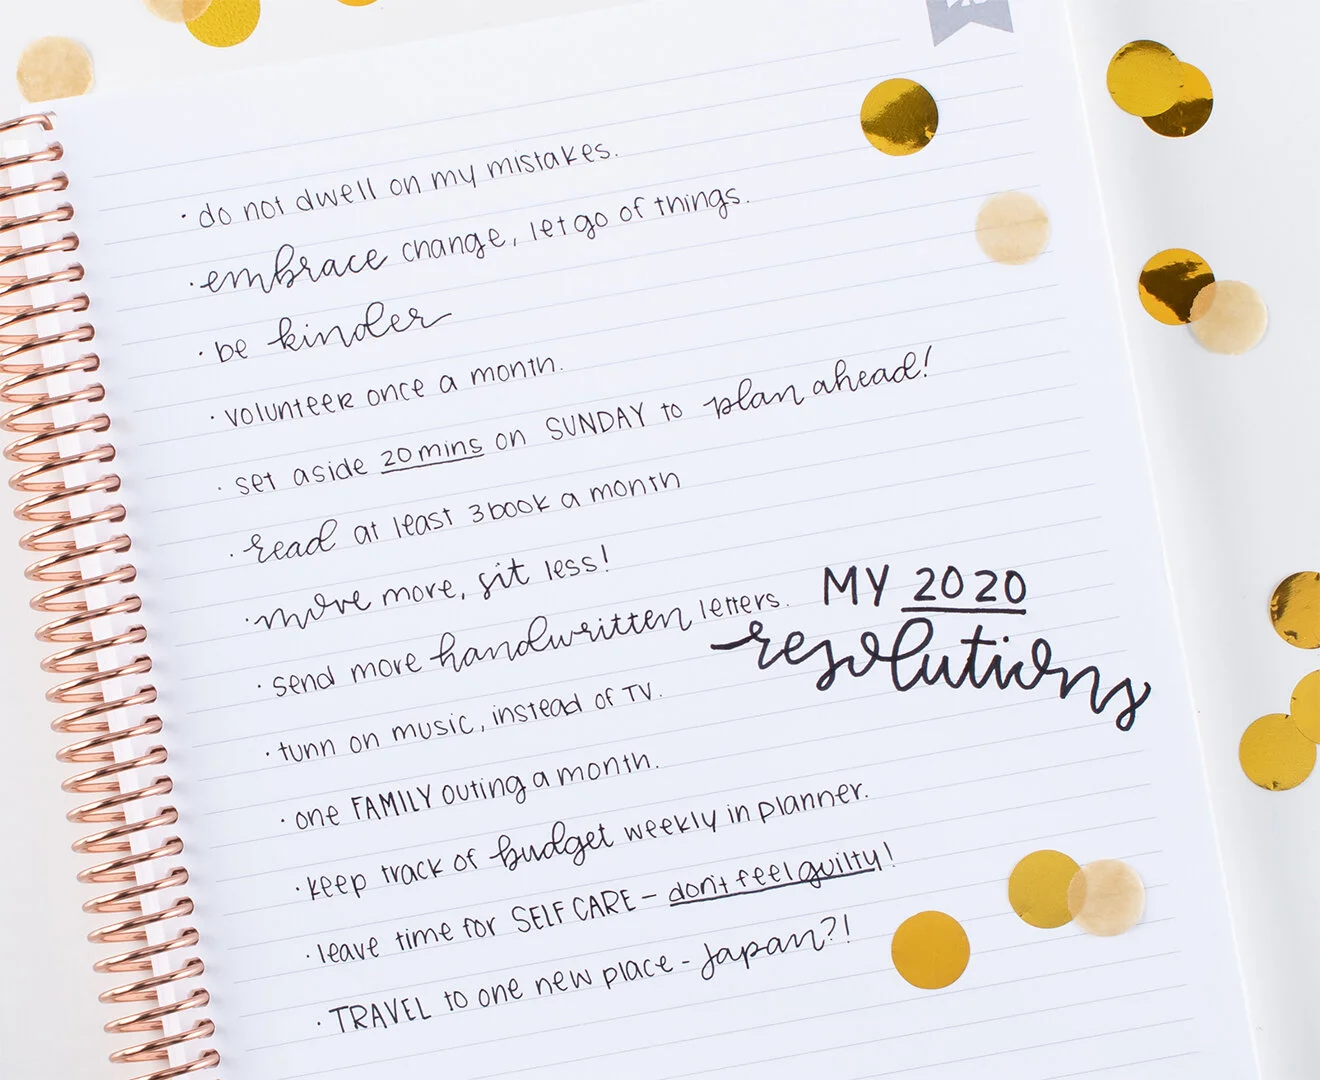 · do not dwell on my mistakes.
· embrace change, let go of things.
· be kinder
· volunteer once a month.
· set aside 20 mins on SUNDAY to plan ahead!
· read at least 3 book a month
· move more, sit less!
· send more handwritten letters.
MY 2020
resolutions
· turn on music, instead of TV.
· one FAMILY outing a month.
· keep track of budget weekly in planner.
· leave time for SELF CARE – don't feel guilty!
· TRAVEL to one new place - Japan?!